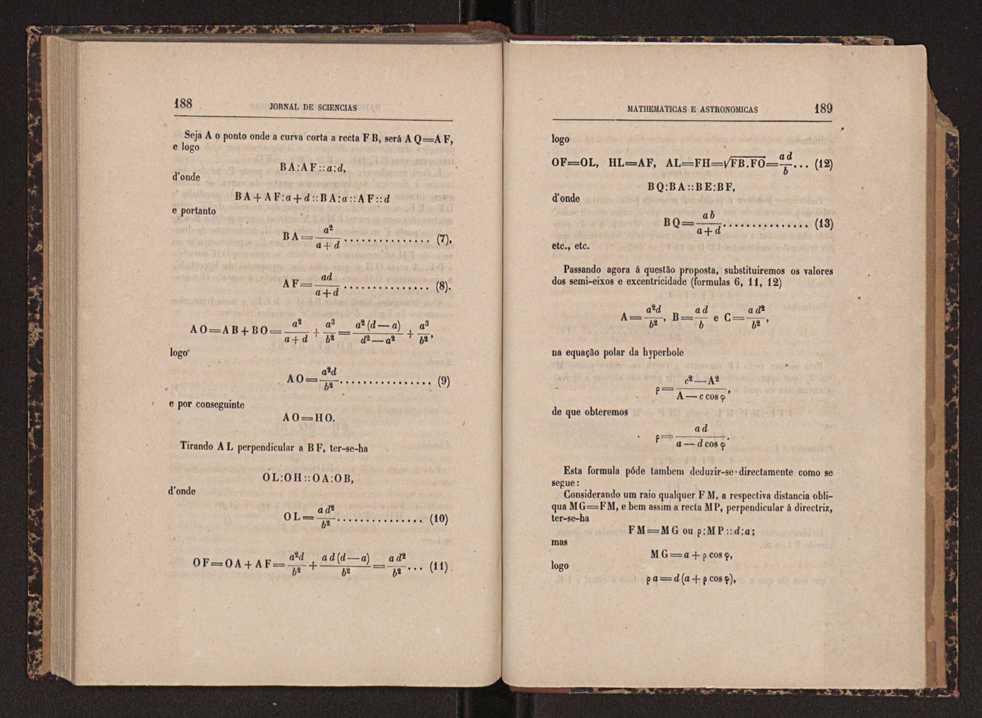 188 JORNAL DE SCIENCIAS
Seja A o ponto onde a curva corta a recta F B, será A Q=A F,
e logo
B A:A F::a:d,
d'onde
B A + A F:a+d::B A:a::A F::d
e portanto
B A = a²/(a+d) ............... (7),
A F = ad/(a+d) ............... (8).
A O = A B + B O = a²/(a+d) + a³/b² = a²(d—a)/(d²—a²) + a³/b²,
logo
A O = a²d/b² ............... (9)
e por conseguinte
A O = H O.
Tirando A L perpendicular a B F, ter-se-ha
O L:O H::O A:O B,
d'onde
O L = ad²/b² ............... (10)
O F = O A + A F = a²d/b² + ad(d—a)/b² = ad²/b² ... (11)
MATHEMATICAS E ASTRONOMICAS 189
logo
OF=OL, HL=AF, AL=FH=√FB.FO = ad/b ... (12)
B Q:B A::B E:B F,
d'onde
B Q = ab/(a+d) ............... (13)
etc., etc.
Passando agora á questão proposta, substituiremos os valores
dos semi-eixos e excentricidade (formulas 6, 11, 12)
A = a²d/b², B = ad/b e C = ad²/b²,
na equação polar da hyperbole
ρ = (c²—A²)/(A—c cos φ),
de que obteremos
ρ = ad/(a—d cos φ).
Esta formula póde tambem deduzir-se directamente como se
segue:
Considerando um raio qualquer F M, a respectiva distancia obli-
qua M G=FM, e bem assim a recta MP, perpendicular á directriz,
ter-se-ha
F M = M G ou ρ:M P::d:a;
mas
M G = a + ρ cos φ,
logo
ρ a = d (a + ρ cos φ),